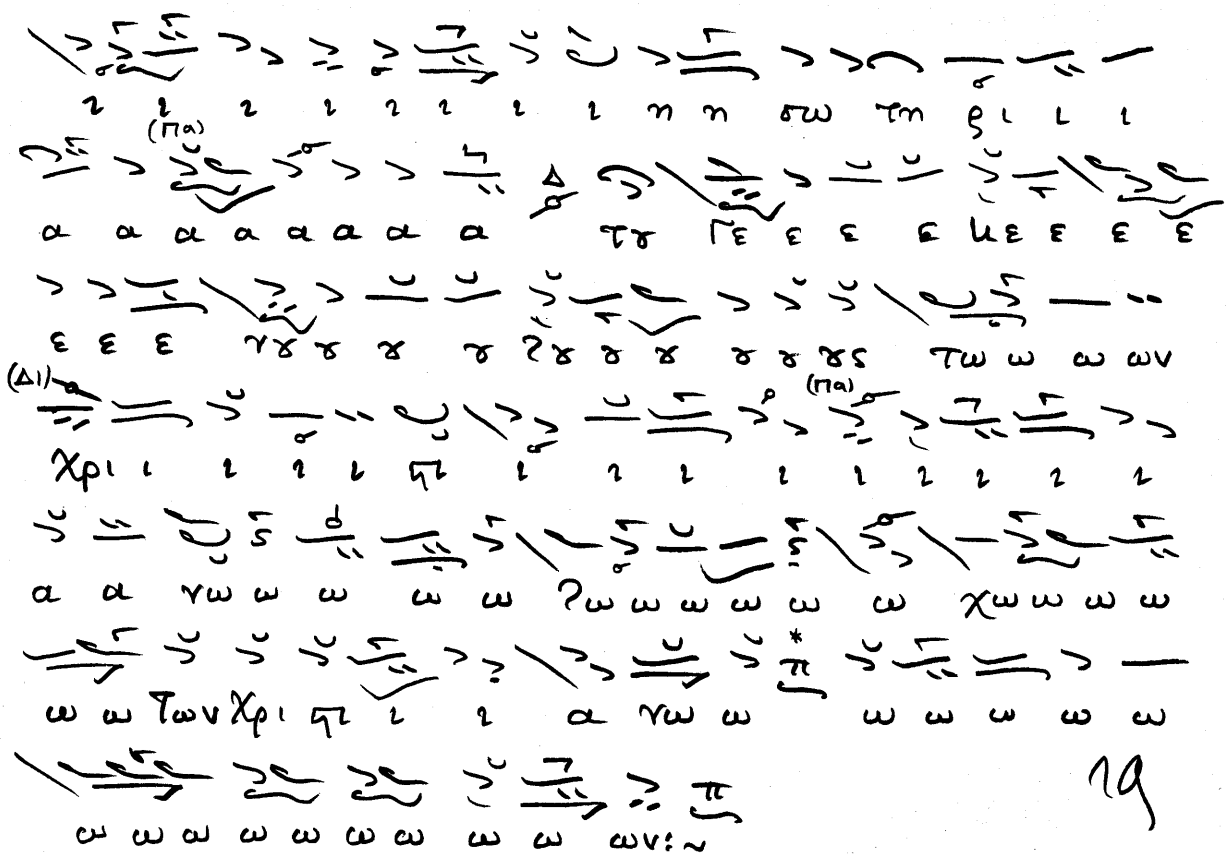 ι ι ι ι ι ι ι ι η η σω τη ρι ι ι
(Πα)
α α α α α α α α Δ τȣ Γε ε ε ε ε ε ε
ε ε ε νȣ ȣ ȣ ȣ ȣ ȣ ȣ ȣς τω ω ω ων
(Δι) (Πα)
Χρι ι ι ι ι στι ι ι ι ι ι ι ι ι ι
α α νω ω ω ω ω ω ω ω ω ω χω ω ω ω
π
ω ω των Χρι στι ι ι α νω ω ω ω ω ω ω
π
ω ω ω ω ω ω ω ω ω ων:~